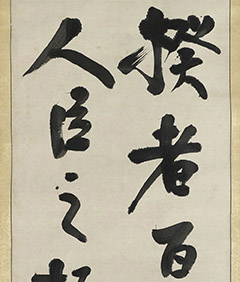 揆者百
人臣之